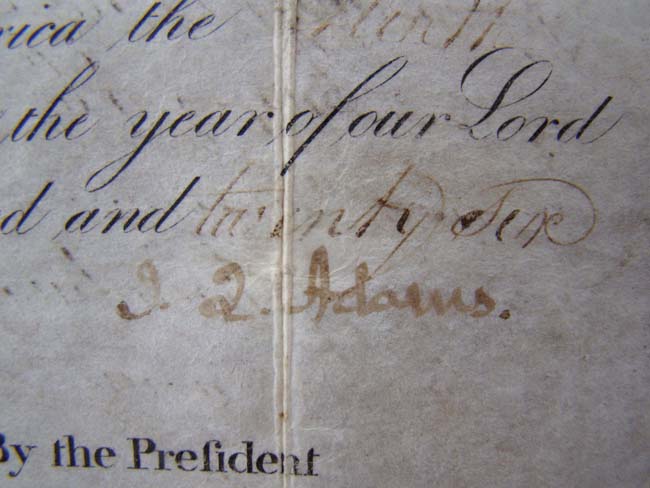 rica the
the year of our Lord
d and twenty six
J. Q. Adams.
By the Preſident